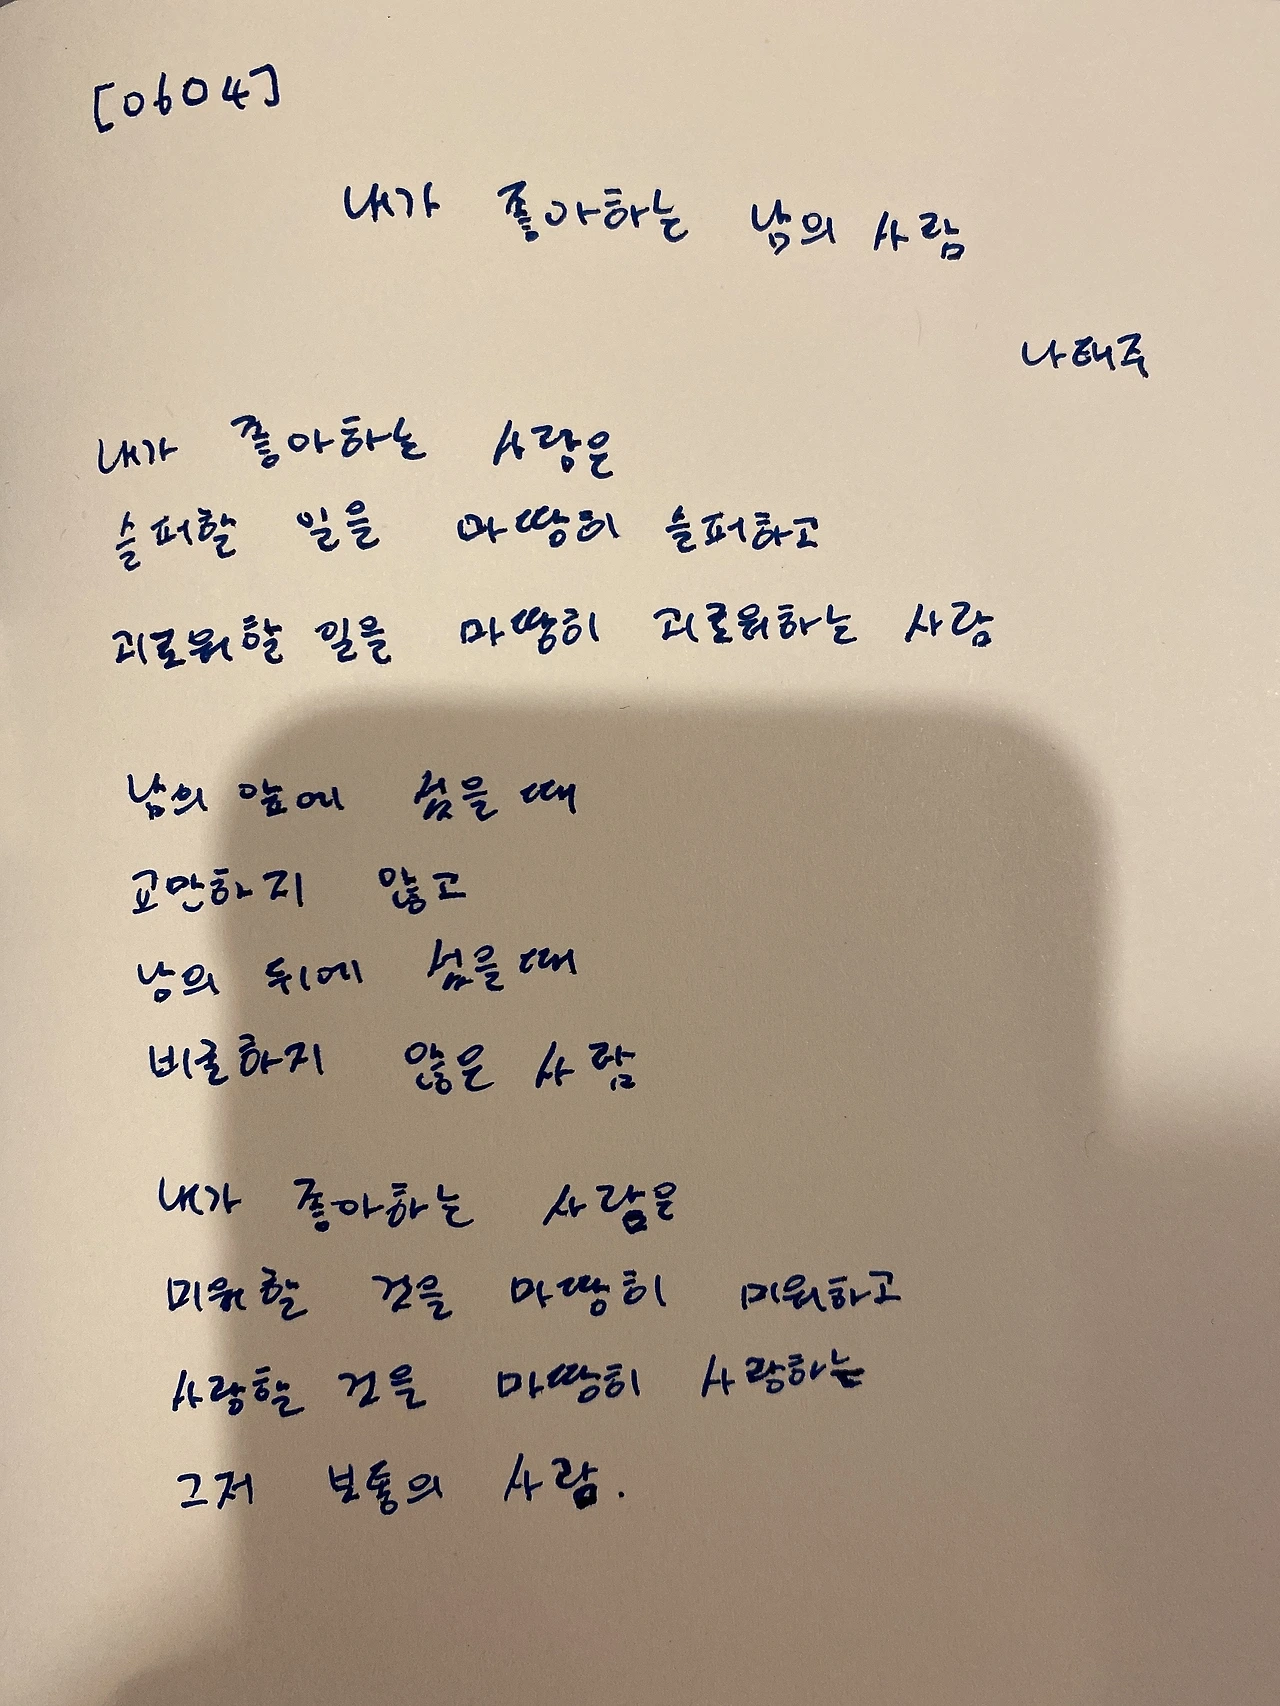 [0604]
내가 좋아하는 남의 사람
나태주
내가 좋아하는 사람은
슬퍼할 일을 마땅히 슬퍼하고
괴로워할 일을 마땅히 괴로워하는 사람
남의 앞에 섰을 때
교만하지 않고
남의 뒤에 섰을 때
비굴하지 않은 사람
내가 좋아하는 사람은
미워할 것을 마땅히 미워하고
사랑할 것을 마땅히 사랑하는
그저 보통의 사람.